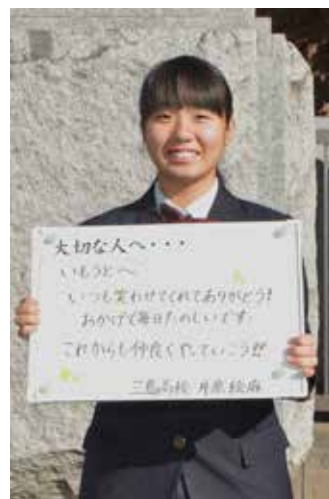 大切な人へ・・・
いもうとへ
いつも笑わせてくれてありがとう!
おかげで毎日たのしいです
これからも仲良くしていこう!!
三島高校